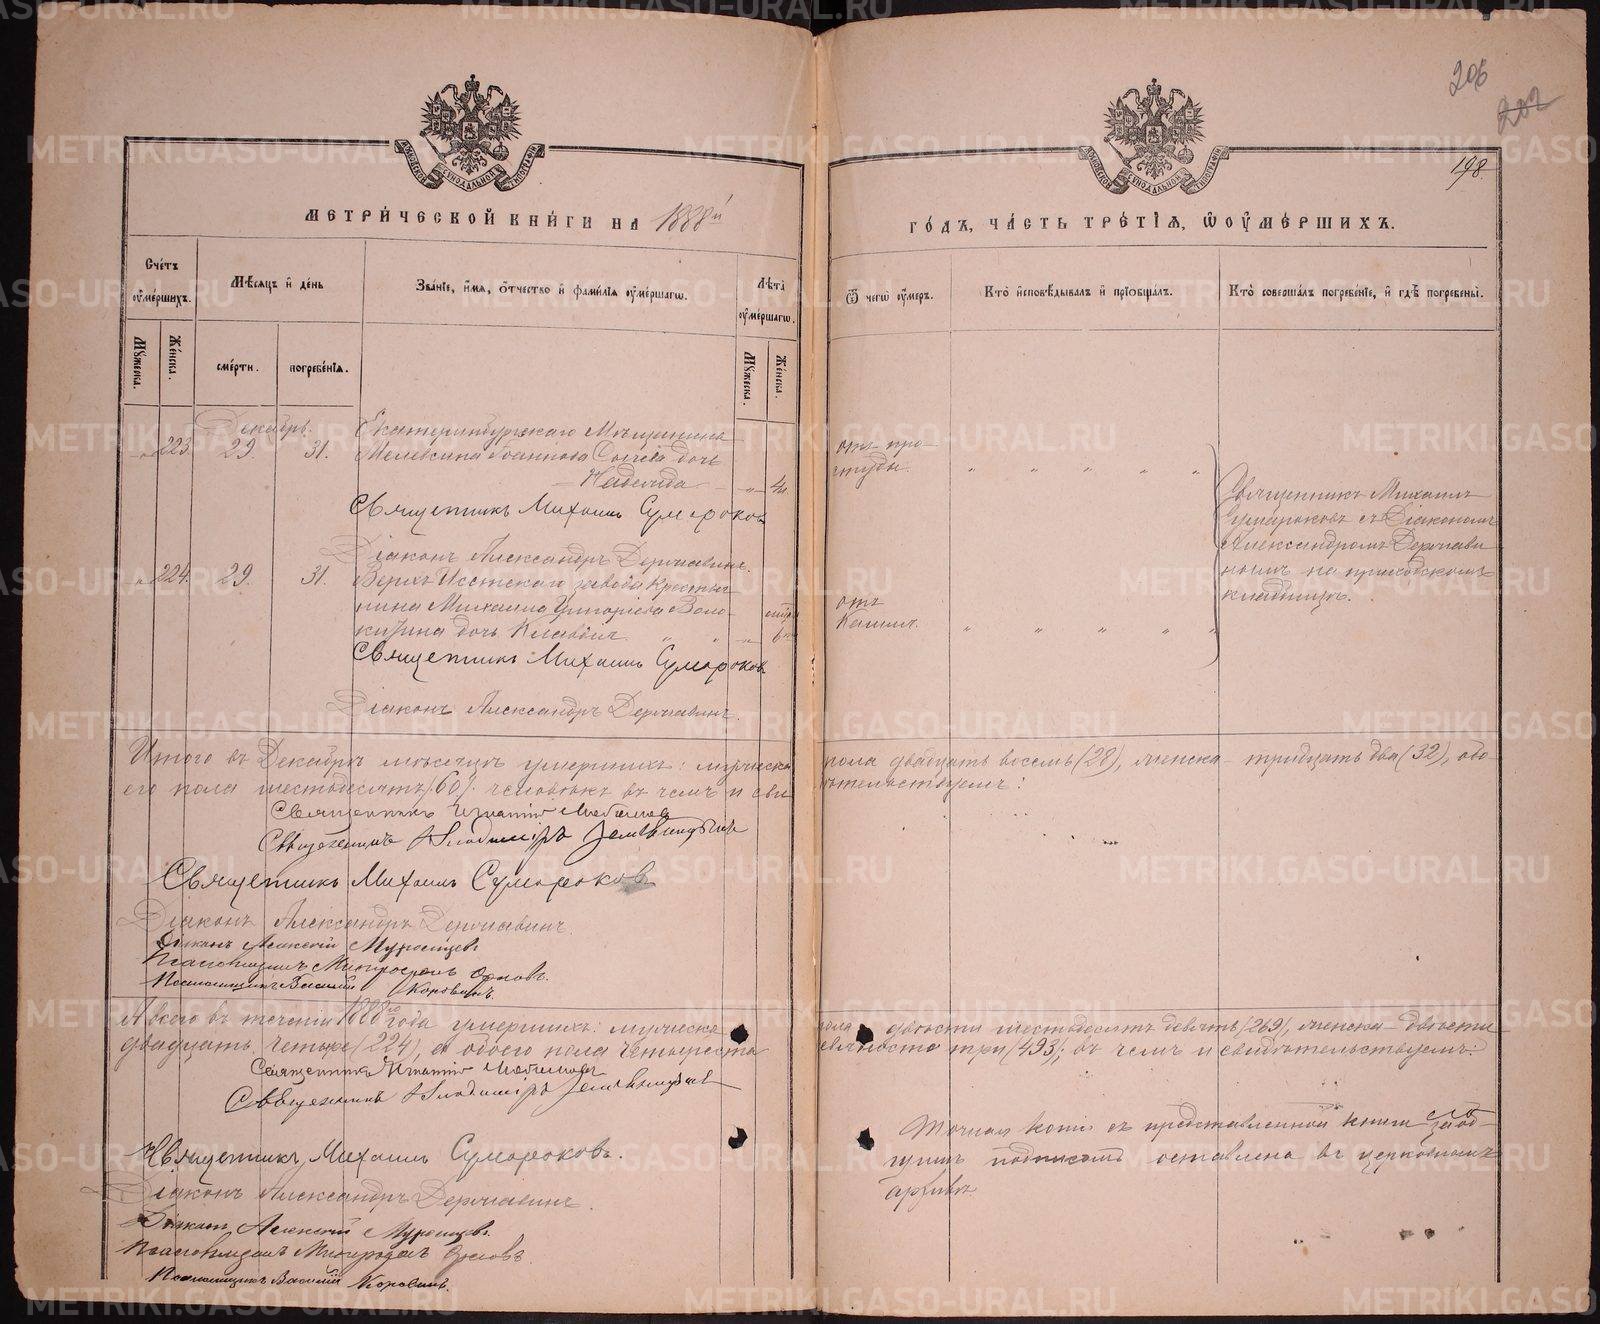 206
202
198.
МЕТРИЧЕСКОЙ КНИГИ НА 1888й
ГОДЪ, ЧАСТЬ ТРЕТІЯ, Ѡ ОУМЕРШИХЪ.
Счетъ оумершихъ.
Мѣсяцъ и день
Званіе, имя, отчество и фамилія оумершагѡ.
Лѣта оумершагѡ.
Ѿ чегѡ оумеръ.
Кто исповѣдывалъ и пріобщалъ.
Кто совершалъ погребеніе, и гдѣ погребены.
Мужеска.
Женска.
смерти.
погребенія.
Мужеска.
Женска.
Декабрь.
223. 29. 31. Екатеринбургскаго Мѣщанина
Іоаннова дочь
Надежда
отъ про-
студы.
Священникъ Михаилъ Сумароковъ
Діаконъ Александръ Державинъ.
224. 29. 31. Верхъ Исетскаго завода Крестья
нина Михаила Григоріева Воло-
китина дочь Клавдія
6
отъ
Кашля.
Священникъ Михаилъ Сумароковъ
Діаконъ Александръ Державинъ.
Священникъ Михаилъ
Сумароковъ съ Діакономъ
Александромъ Держави
нымъ на приходскомъ
кладбищѣ.
Итого въ Декабрѣ мѣсяцѣ умершихъ: мужеска пола двадцать восемь (28), женска – тридцать два (32), обо-
его пола шестьдесятъ (60) человѣкъ въ чемъ и свидѣтельствуемъ:
Священникъ Игнатій
Священникъ Владиміръ Земляницынъ
Священникъ Михаилъ Сумароковъ
Діаконъ Александръ Державинъ.
Діаконъ Алексій
Псаломщикъ Митрофанъ Орловъ.
Псаломщикъ Василій Коровинъ.
А всего въ теченіи 1888го года умершихъ: мужеска пола двѣсти шестьдесятъ девять (269), женска – двѣсти
двадцать четыре (224), а обоего пола четыреста девяносто три (493); въ чемъ и свидѣтельствуемъ:
Священникъ Игнатій
Священникъ Владиміръ Земляницынъ
Священникъ Михаилъ Сумароковъ.
Діаконъ Александръ Державинъ.
Діаконъ Алексій
Псаломщикъ Митрофанъ Орловъ
Псаломщикъ Василій Коровинъ.
Точная копія съ представленной книги
оставлена въ церковномъ
архивѣ
METRIKI.GASO-URAL.RU